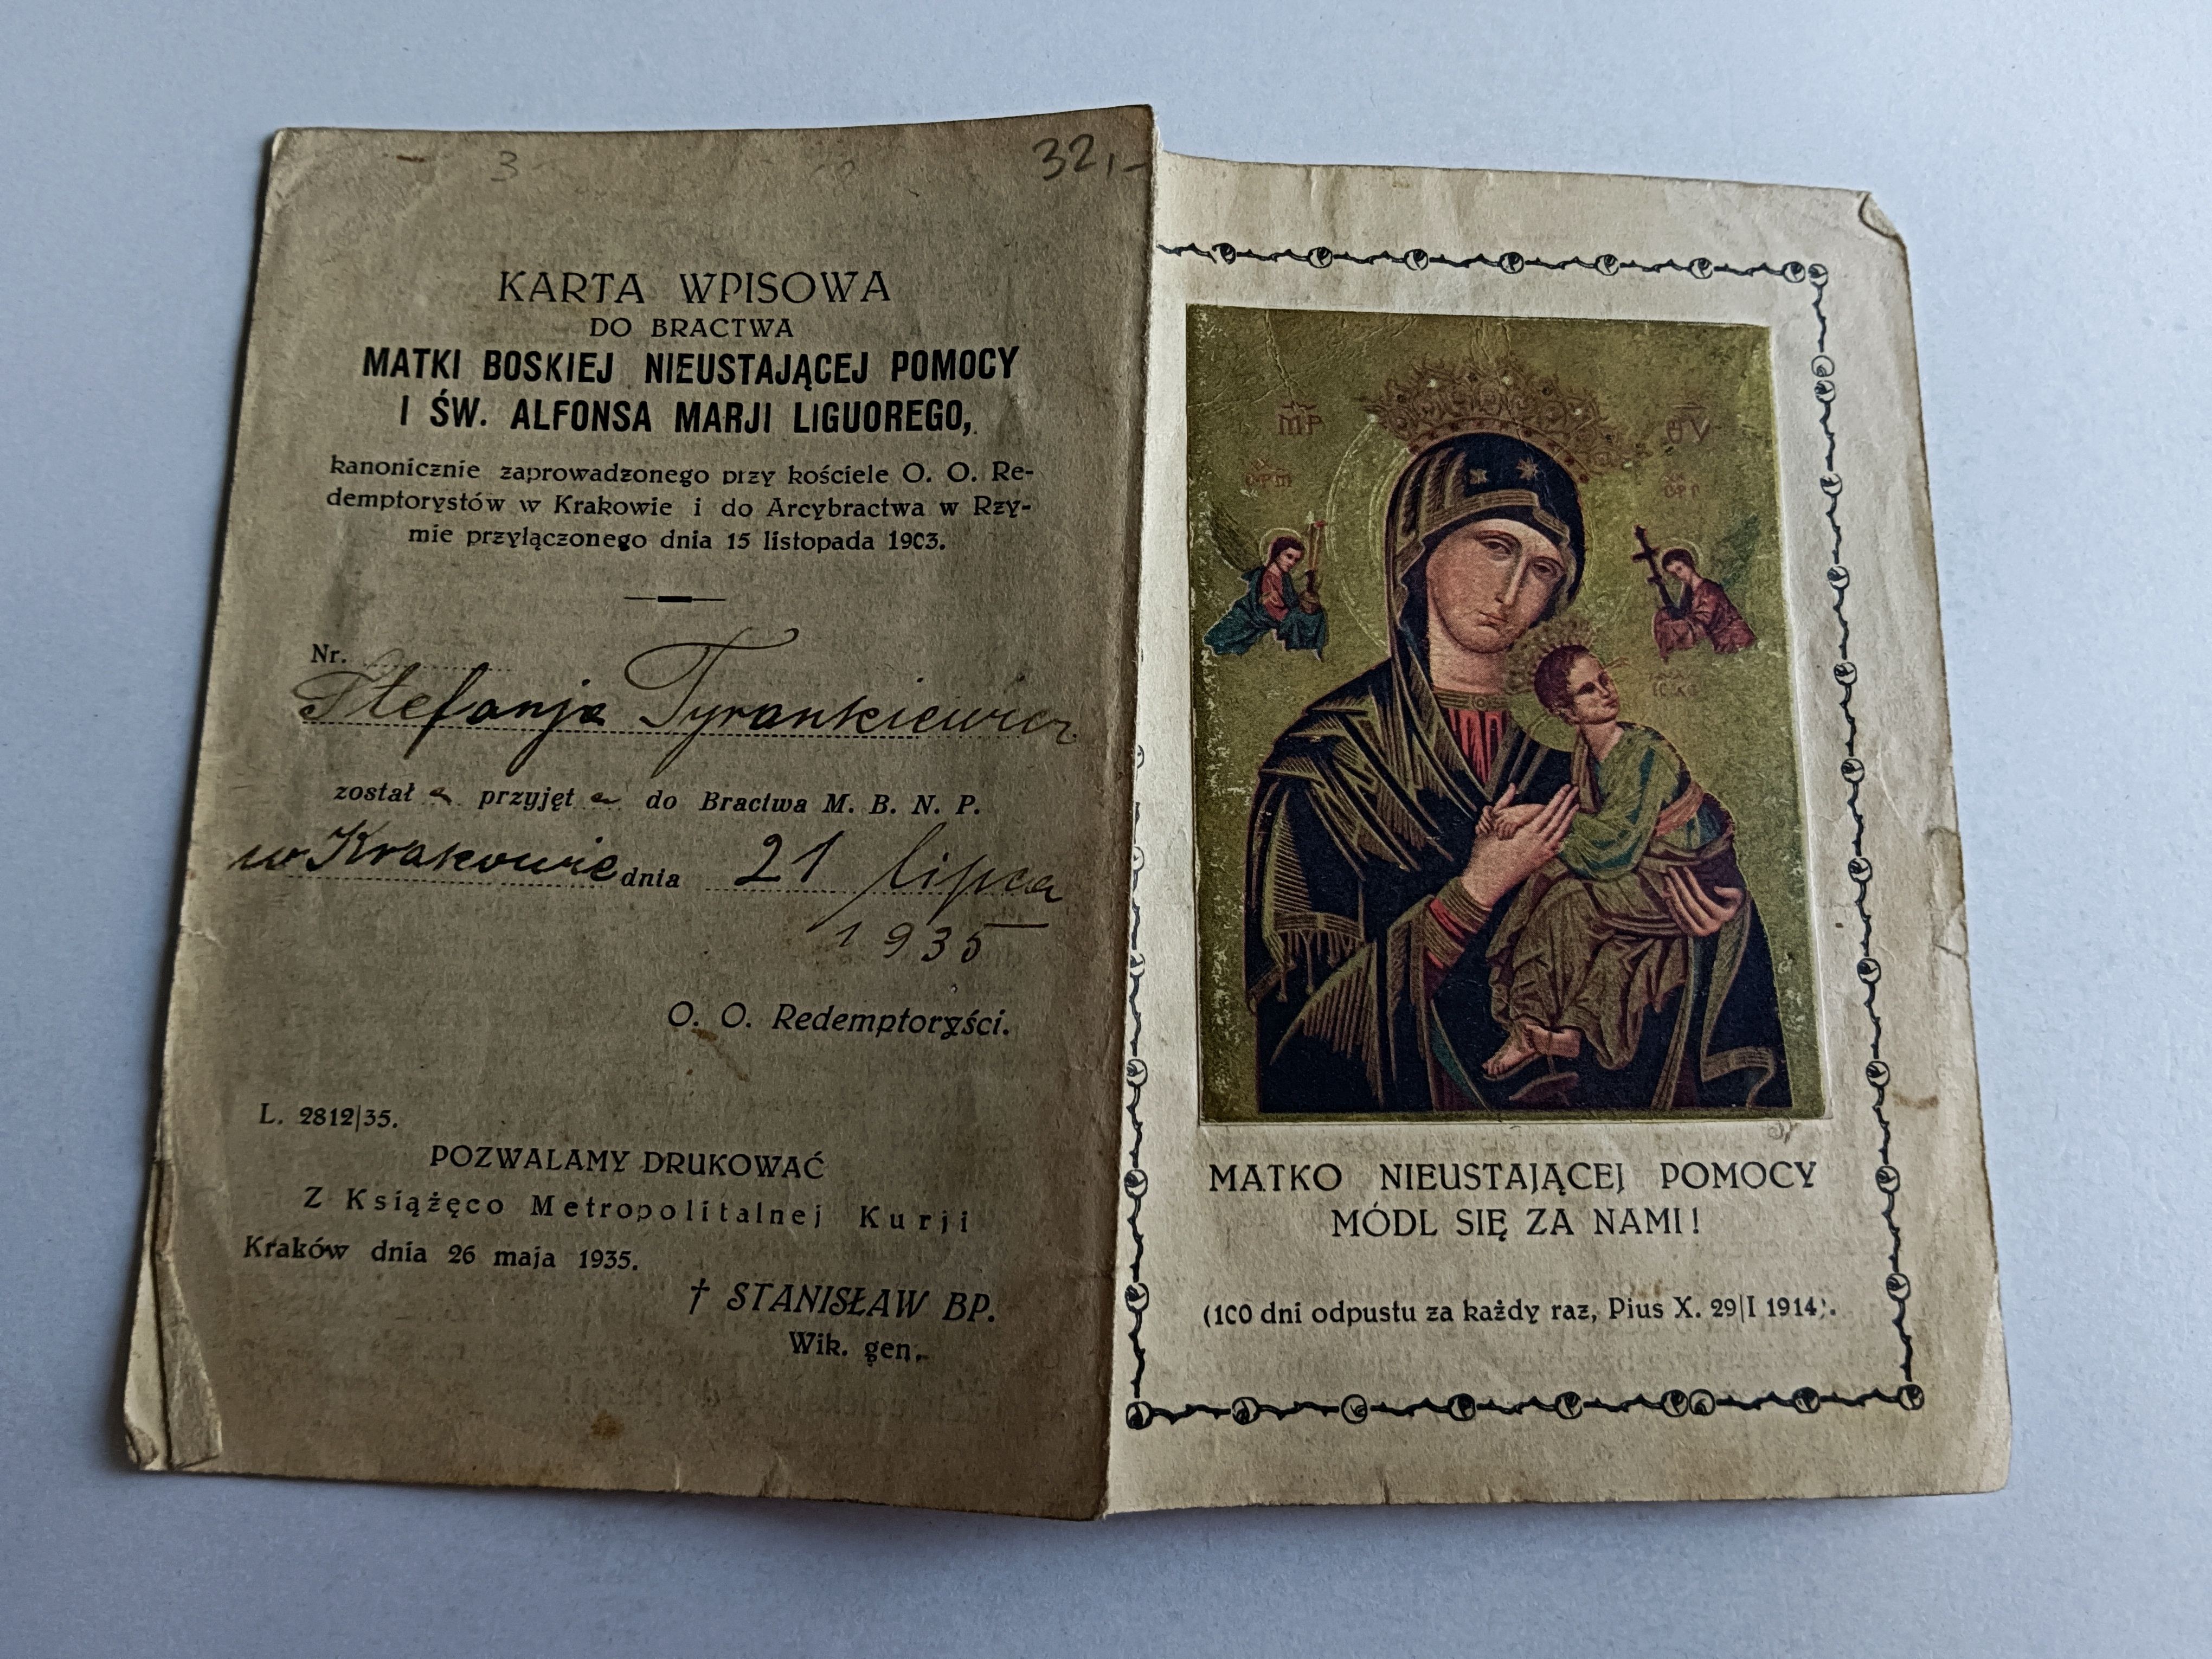 32,-
KARTA WPISOWA
DO BRACTWA
MATKI BOSKIEJ NIEUSTAJĄCEJ POMOCY
I ŚW. ALFONSA MARJI LIGUOREGO,
kanonicznie zaprowadzonego przy kościele O. O. Re-
demptorystów w Krakowie i do Arcybractwa w Rzy-
mie przyłączonego dnia 15 listopada 1903.
Nr.
Stefanja Tyrankiewicz
został a przyjęt a do Bractwa M. B. N. P.
w Krakowie dnia 21 lipca
1935
O. O. Redemptoryści.
L. 2812|35.
POZWALAMY DRUKOWAĆ
Z Książęco Metropolitalnej Kurji
Kraków dnia 26 maja 1935.
† STANISŁAW BP.
Wik. gen.
MP ΘV
MATKO NIEUSTAJĄCEJ POMOCY
MÓDL SIĘ ZA NAMI!
(100 dni odpustu za każdy raz, Pius X. 29|I 1914).